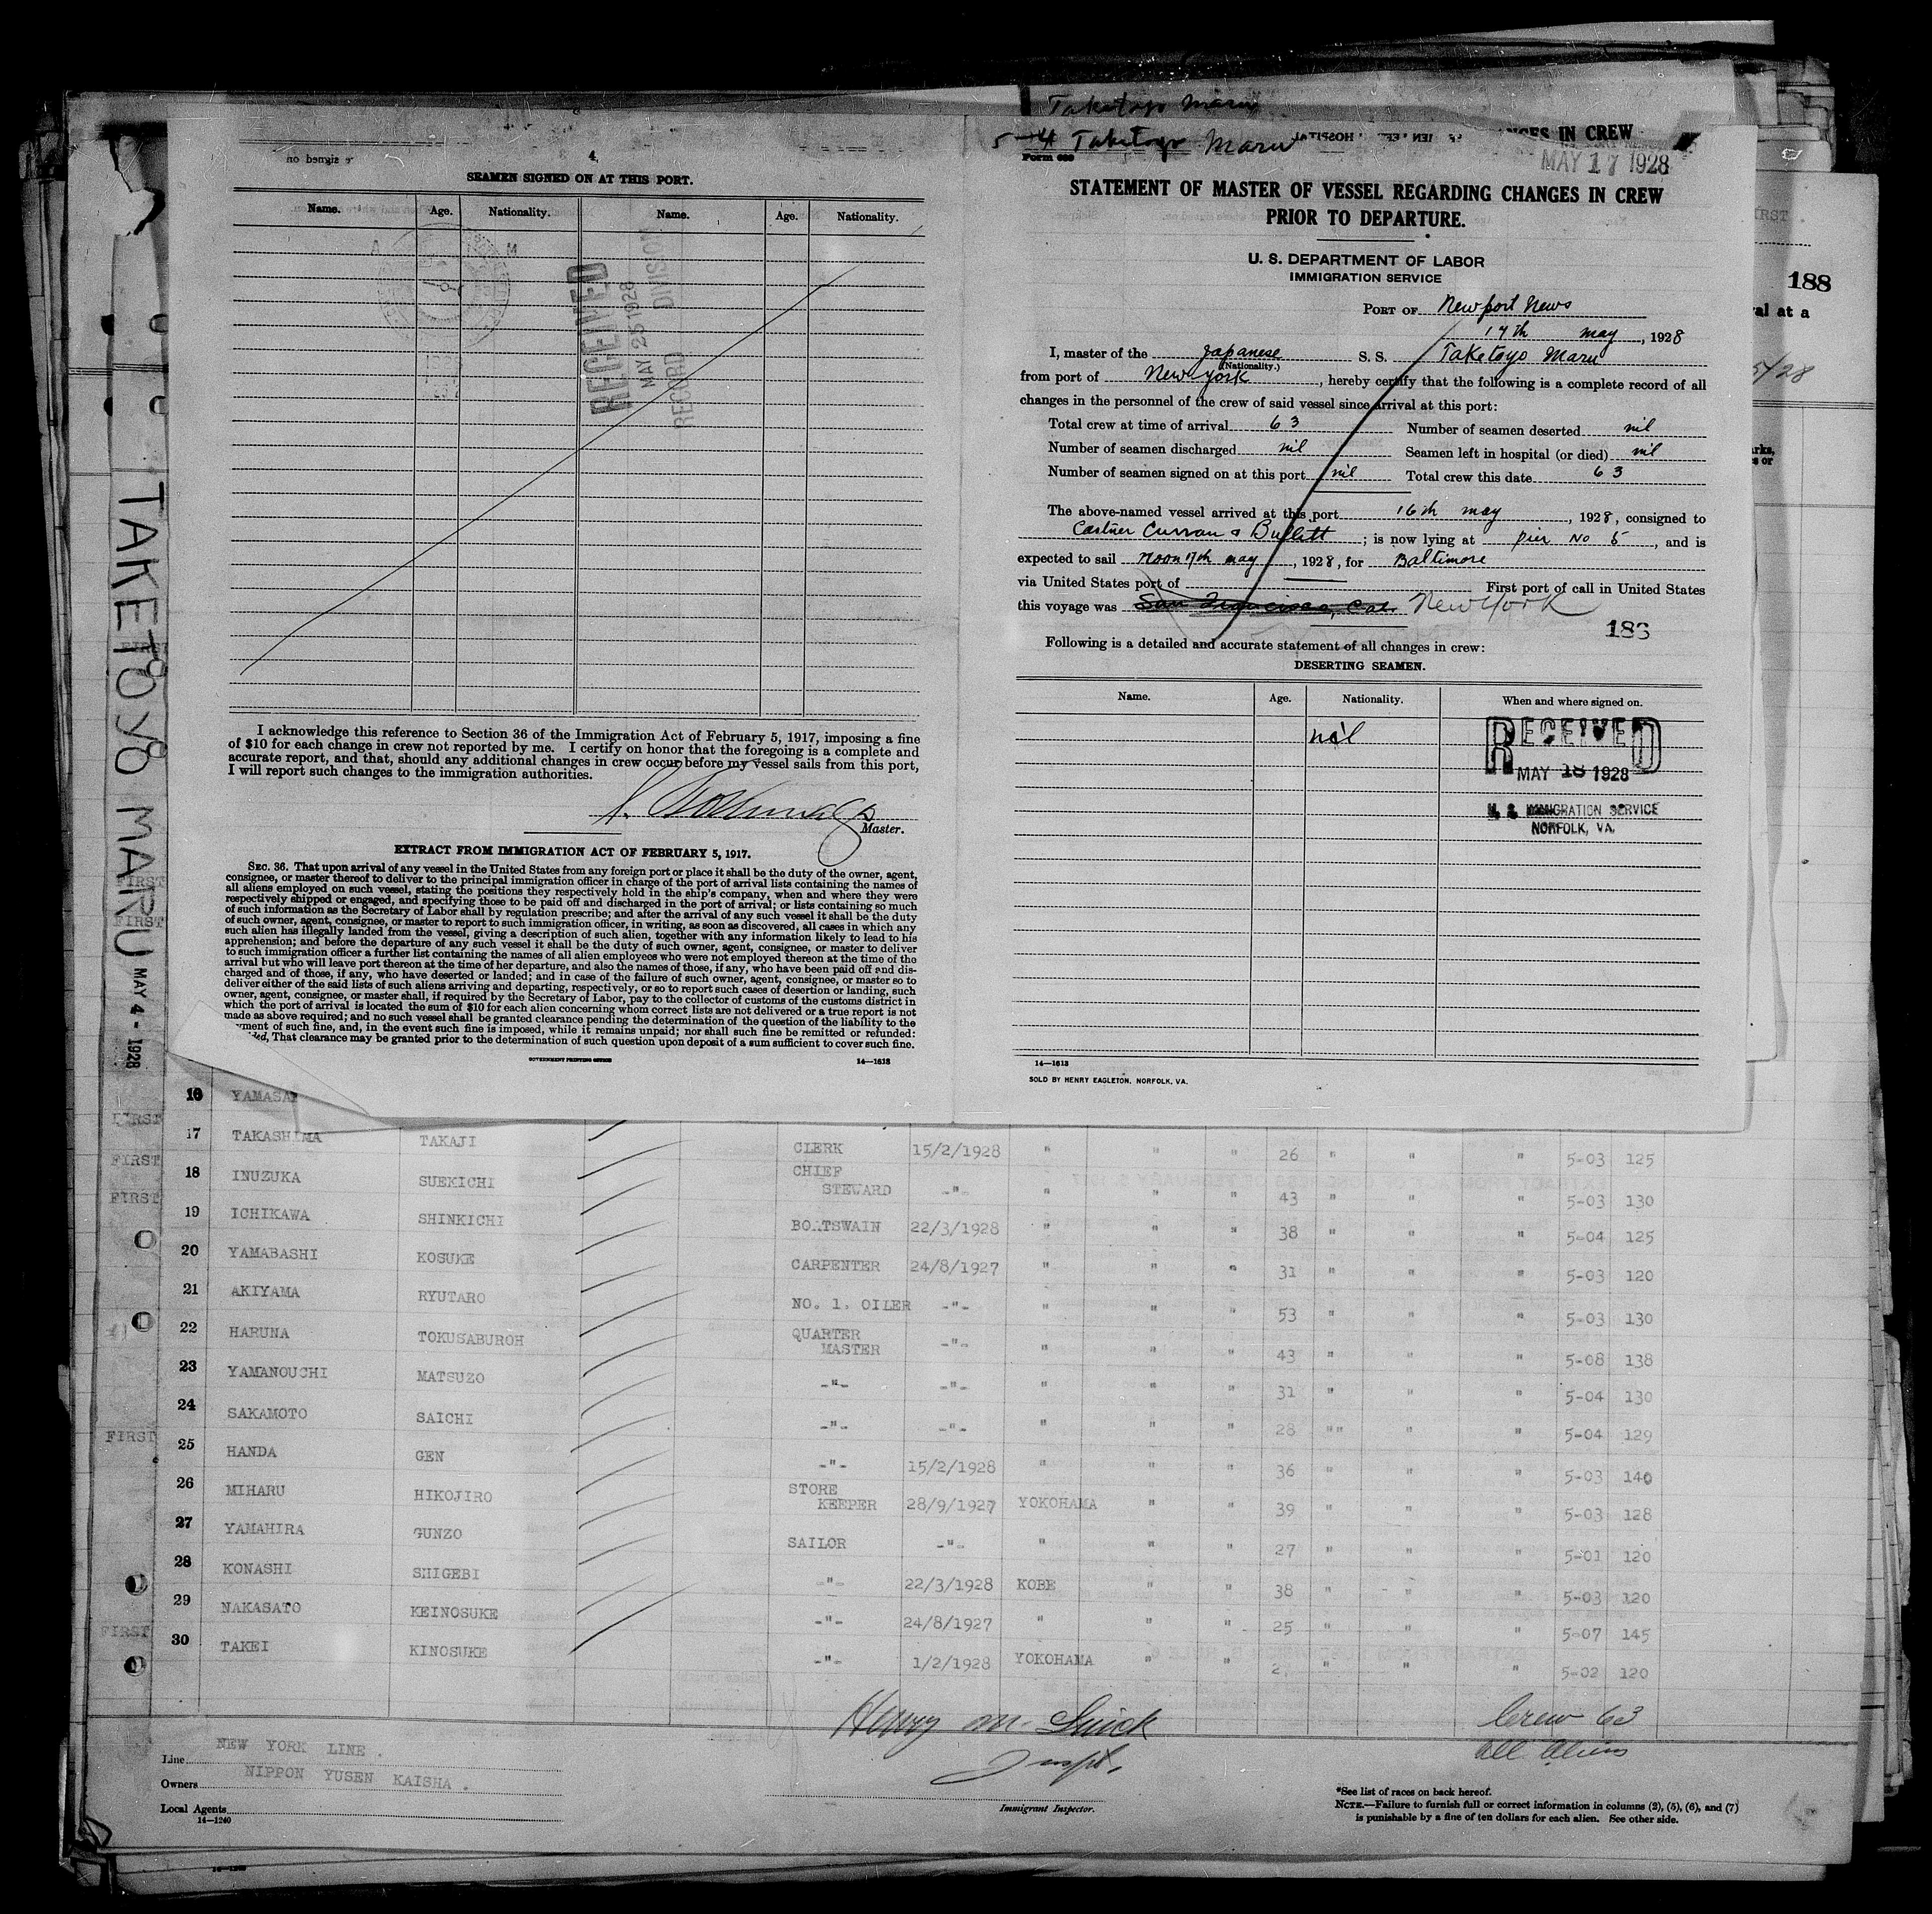 Taketoyo Maru
5-4 Taketoyo Maru
NGES IN CREW
MAY 17 1928
4
SEAMEN SIGNED ON AT THIS PORT.
Name. Age. Nationality. Name. Age. Nationality.
A M
RECEIVED
MAY 25 1928
RECORD DIVISION
I acknowledge this reference to Section 36 of the Immigration Act of February 5, 1917, imposing a fine
of $10 for each change in crew not reported by me. I certify on honor that the foregoing is a complete and
accurate report, and that, should any additional changes in crew occur before my vessel sails from this port,
I will report such changes to the immigration authorities.
Master.
EXTRACT FROM IMMIGRATION ACT OF FEBRUARY 5, 1917.
SEC. 36. That upon arrival of any vessel in the United States from any foreign port or place it shall be the duty of the owner, agent,
consignee, or master thereof to deliver to the principal immigration officer in charge of the port of arrival lists containing the names of
all aliens employed on such vessel, stating the positions they respectively hold in the ship's company, when and where they were
respectively shipped or engaged, and specifying those to be paid off and discharged in the port of arrival; or lists containing so much
of such information as the Secretary of Labor shall by regulation prescribe; and after the arrival of any such vessel it shall be the duty
of such owner, agent, consignee, or master to report to such immigration officer, in writing, as soon as discovered, all cases in which any
such alien has illegally landed from the vessel, giving a description of such alien, together with any information likely to lead to his
apprehension; and before the departure of any such vessel it shall be the duty of such owner, agent, consignee, or master to deliver
to such immigration officer a further list containing the names of all alien employees who were not employed thereon at the time of the
arrival but who will leave port thereon at the time of her departure, and also the names of those, if any, who have been paid off and dis-
charged and of those, if any, who have deserted or landed; and in case of the failure of such owner, agent, consignee, or master so to
deliver either of the said lists of such aliens arriving and departing, respectively, or so to report such cases of desertion or landing, such
owner, agent, consignee, or master shall, if required by the Secretary of Labor, pay to the collector of customs of the customs district in
which the port of arrival is located the sum of $10 for each alien concerning whom correct lists are not delivered or a true report is not
made as above required; and no such vessel shall be granted clearance pending the determination of the question of the liability to the
yment of such fine, and, in the event such fine is imposed, while it remains unpaid; nor shall such fine be remitted or refunded:
ded, That clearance may be granted prior to the determination of such question upon deposit of a sum sufficient to cover such fine.
GOVERNMENT PRINTING OFFICE 14—1613
Form 689
STATEMENT OF MASTER OF VESSEL REGARDING CHANGES IN CREW
PRIOR TO DEPARTURE.
U. S. DEPARTMENT OF LABOR
IMMIGRATION SERVICE
PORT OF Newport News
17th May, 1928
I, master of the Japanese S. S. Taketoyo Maru
(Nationality.)
from port of New York, hereby certify that the following is a complete record of all
changes in the personnel of the crew of said vessel since arrival at this port:
Total crew at time of arrival 63 Number of seamen deserted nil
Number of seamen discharged nil Seamen left in hospital (or died) nil
Number of seamen signed on at this port nil Total crew this date 63
The above-named vessel arrived at this port 16th May, 1928, consigned to
Castner Curran & Bullitt; is now lying at pier No 5, and is
expected to sail Noon 17th May, 1928, for Baltimore
via United States port of First port of call in United States
this voyage was San Francisco, Cal. New York
183
Following is a detailed and accurate statement of all changes in crew:
DESERTING SEAMEN.
Name. Age. Nationality. When and where signed on.
nil
RECEIVED
MAY 18 1928
U. S. IMMIGRATION SERVICE
NORFOLK, VA.
14—1613
SOLD BY HENRY EAGLETON, NORFOLK, VA.
IRST
188
al at a
5/28
TAKETOYO MARU MAY 4 - 1928
FIRST
FIRST
16 YAMASA
FIRST
17 TAKASHIMA TAKAJI CLERK 15/2/1928 " " " 26 " " " 5-03 125
FIRST
18 INUZUKA SUEKICHI CHIEF STEWARD -"- " " " 43 " " " 5-03 130
FIRST
19 ICHIKAWA SHINKICHI BOATSWAIN 22/3/1928 " " " 38 " " " 5-04 125
20 YAMABASHI KOSUKE CARPENTER 24/8/1927 " " " 31 " " " 5-03 120
21 AKIYAMA RYUTARO NO. 1. OILER -"- " " " 53 " " " 5-03 130
22 HARUNA TOKUSABUROH QUARTER MASTER -"- " " " 43 " " " 5-08 138
23 YAMANOUCHI MATSUZO -"- -"- " " " 31 " " " 5-04 130
24 SAKAMOTO SAICHI -"- -"- " " " 28 "" " " 5-04 129
FIRST
25 HANDA GEN -"- 15/2/1928 " " " 36 " " " 5-03 140
26 MIHARU HIKOJIRO STORE KEEPER 28/9/1927 YOKOHAMA " " 39 " " " 5-03 128
27 YAMAHIRA GUNZO SAILOR -"- " " " 27 " " " 5-01 120
28 KONASHI SHIGEBI -"- 22/3/1928 KOBE " " 38 " " " 5-03 120
29 NAKASATO KEINOSUKE -"- 24/8/1927 " " " 25 " " " 5-07 145
FIRST
30 TAKEI KINOSUKE -"- 1/2/1928 YOKOHAMA " " " " " 5-02 120
Henry M.
Inspt.
Crew 63
All Aliens
Line NEW YORK LINE.
Owners NIPPON YUSEN KAISHA.
Local Agents
14—1240
Immigrant Inspector.
*See list of races on back hereof.
NOTE.—Failure to furnish full or correct information in columns (2), (5), (6), and (7)
is punishable by a fine of ten dollars for each alien. See other side.